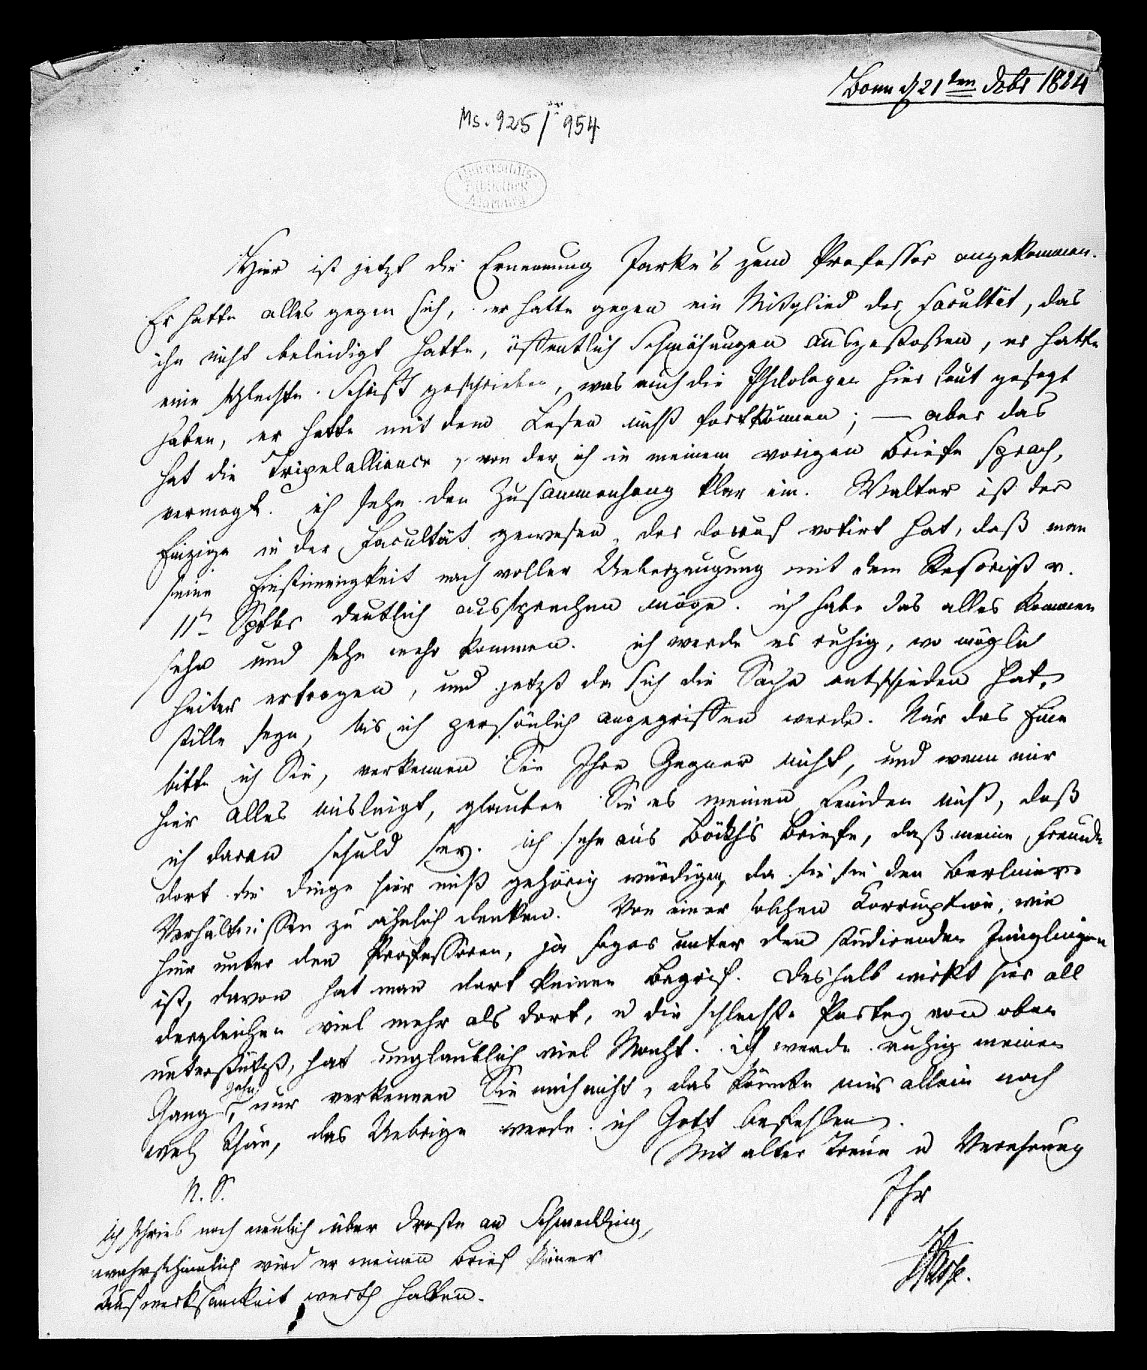 Bonn d 21ten Octbr 1824
Ms. 925/954
Universitäts-
Bibliothek
Marburg
Hier ist jetzt die Ernennung Jarke's zum Professor angekommen.
Er hatte alles gegen sich, er hatte gegen ein Mitglied der Facultät, das
ihn nicht beleidigt hatte, öffentlich Schmähungen ausgestoßen, er hatte
eine schlechte Schrift geschrieben, was auch die Philologen hier laut gesagt
haben, er hatte mit dem Lesen nicht fortkönnen; — aber das
hat die Tripelalliance, von der ich in meinem vorigen Briefe sprach,
vermogt. ich sehe den Zusammenhang klar ein. Walter ist der
Einzige in der Facultät gewesen, der darauf votirt hat, daß man
seine Einstimmigkeit nach voller Ueberzeugung mit dem Rescript v.
11t Sptbr deutlich aussprechen möge. ich habe das alles kommen
sehn und sehe mehr kommen. ich werde es ruhig, wo möglich
heiter ertragen, und jetzt da sich die Sache entschieden hat,
stille seyn, bis ich persönlich angegriffen werde. Nur das Eine
bitte ich Sie, verkennen Sie Ihre Gegner nicht, und wenn mir
hier alles mislingt, glauben Sie es meinen Feinden nicht, daß
ich daran schuld sey. ich sehe aus Böckh's Briefe, daß meine Freunde
dort die Dinge hier nicht gehörig würdigen, da sie sie den Berliner
Verhältnissen zu ähnlich denken. Von einer solchen Korruption, wie
hier unter den Professoren, ja sogar unter den studirenden Jünglingen
ist, davon hat man dort keinen Begriff. Deshalb wirkt hier all
dergleichen viel mehr als dort, u die schlechte Partey von oben
unterstützt, hat unglaublich viel Macht. ich werde ruhig meinen
Gang gehn, nur verkennen Sie mich nicht, das könnte mir allein noch
weh thun, das Uebrige werde ich Gott befehlen.
Mit alter Treue u Verehrung
Ihr
Hasse.
N. S.
ich schrieb noch neulich über Droste an Schmedding,
wahrscheinlich wird er meinen Brief keiner
Aufmerksamkeit werth halten.